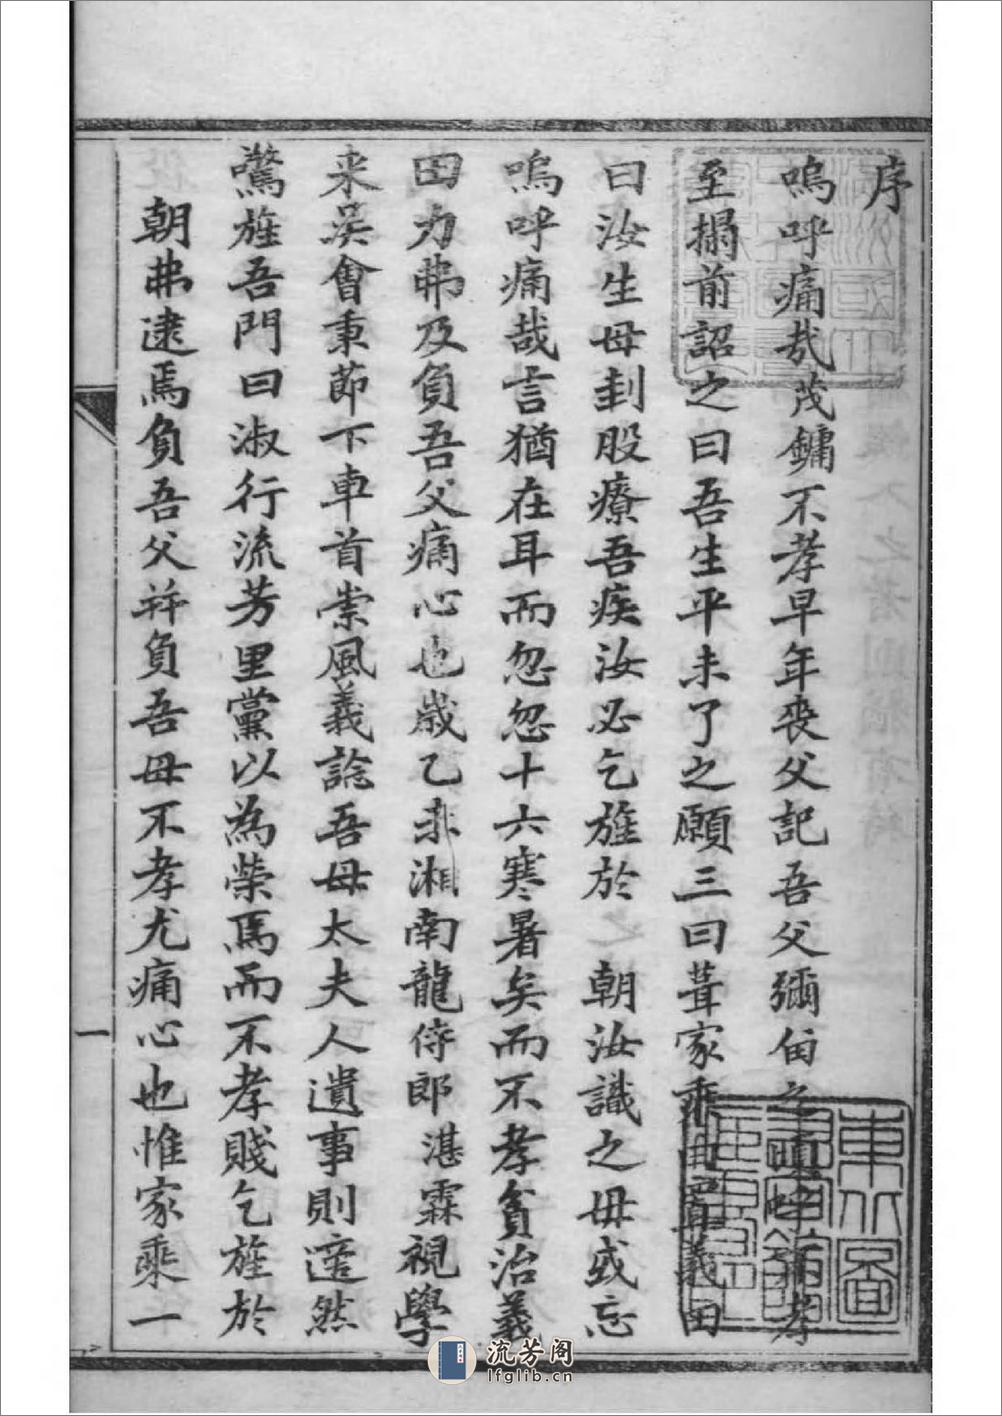 序
嗚呼痛哉茂鏞不孝早年喪父記吾父彌留之頃呼不孝
至搨前詔之曰吾生平未了之願三曰葺家乘曰置義田
曰汝生母刲股療吾疾汝必乞旌於 朝汝識之毋或忘
嗚呼痛哉言猶在耳而忽忽十六寒暑矣而不孝貧治義
田力弗及負吾父痛心也歲乙未湘南龍侍郎湛霖視學
来吳會秉節下車首崇風義諗吾母太夫人遺事則遽然
驚旌吾門曰淑行流芳里黨以為榮焉而不孝賤乞旌於
朝弗逮焉負吾父并負吾母不孝尤痛心也惟家乘一
一
流芳阁
lfglib.cn